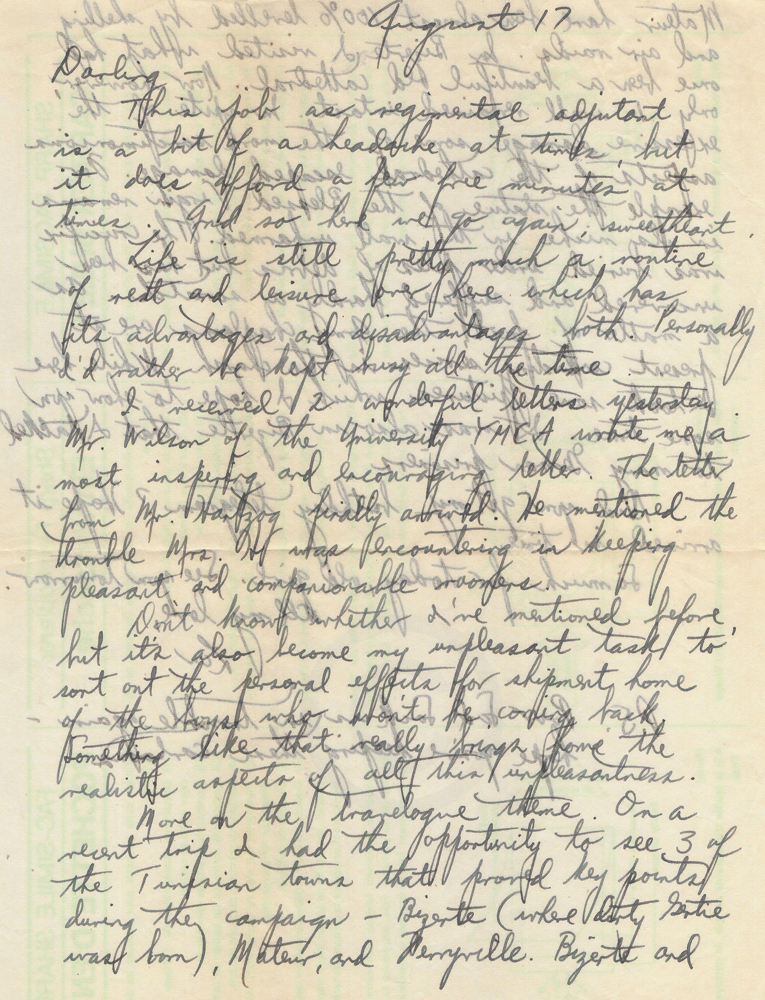 August 17
Darling –
This job as regimental adjutant
is a bit of a headache at times, but
it does afford a few free minutes at
times. And so here we go again, sweetheart.
Life is still pretty much a routine
of rest and leisure over here which has
its advantages and disadvantages both. Personally
I'd rather be kept busy all the time.
I received 2 wonderful letters yesterday.
Mr. Wilson of the University YMCA wrote me a
most inspiring and encouraging letter. The letter
from Mr. Hartzog finally arrived. He mentioned the
trouble Mrs. H was encountering in keeping
pleasant and companionable roomers.
Don't know whether I've mentioned before,
but it's also become my unpleasant task to
sort out the personal effects for shipment home
of the boys who won't be coming back.
Something like that really brings home the
realistic aspects of all this unpleasantness.
More on the travelogue theme. On a
recent trip I had the opportunity to see 3 of
the Tunisian towns that proved key points
during the campaign – Bizerte (where dirty Gertie
was born), Mateur, and Ferryville. Bizerte and